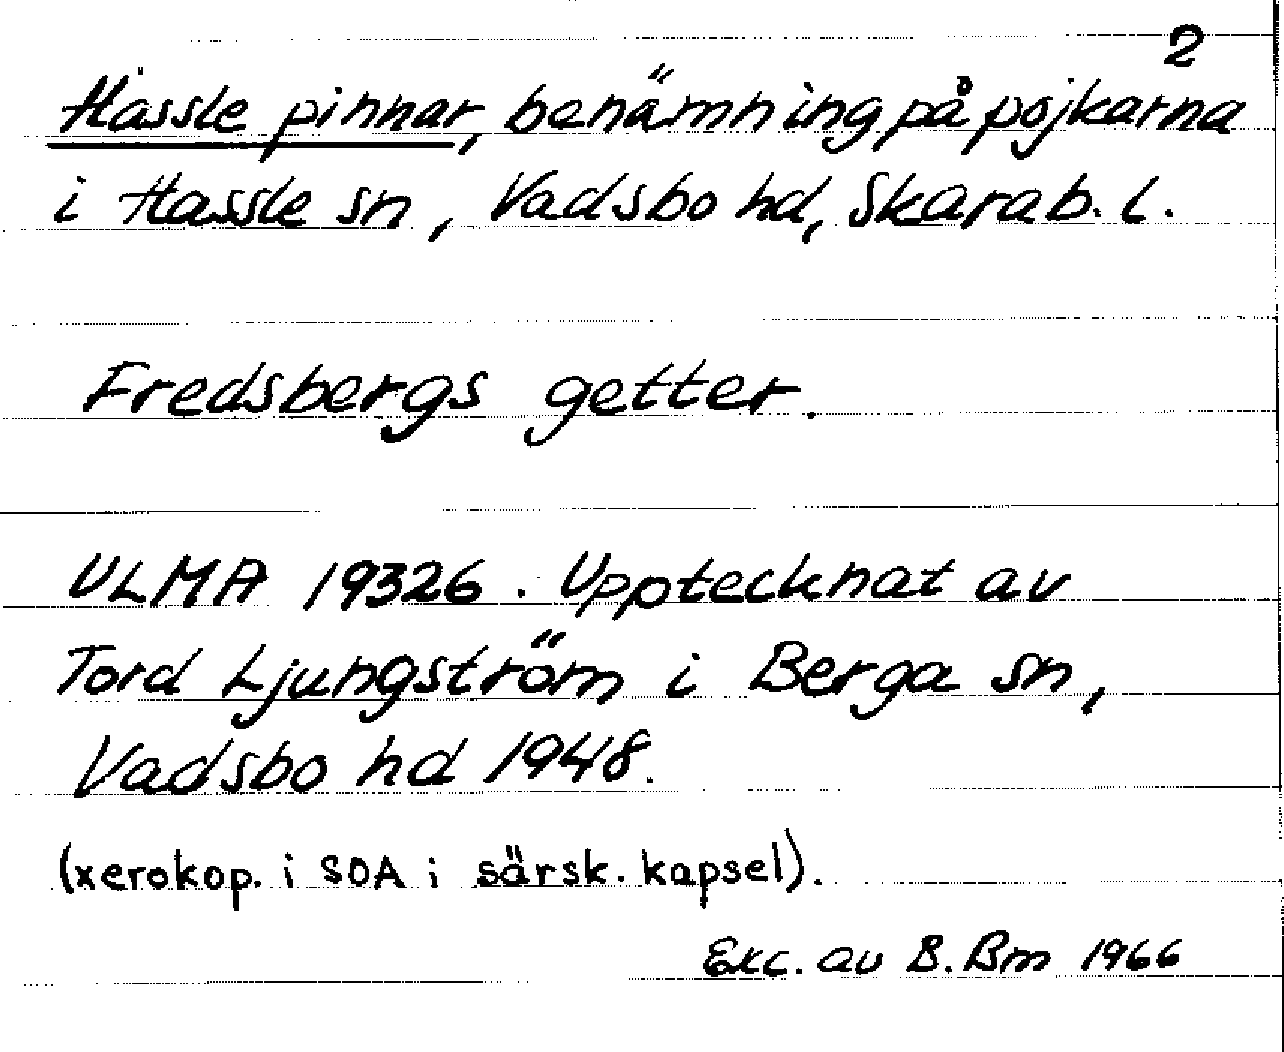 2
Hässle pinnar, benämning på pojkarna
i Hassle sn, Vadsbo hd, Skarab. l.
Fredsbergs getter.
ULMA 19326. Upptecknat av
Tord Ljungström i Berga sn,
Vadsbo hd 1948.
(xerokop. i SOA i särsk. kapsel).
Exc. av B. Bm 1966